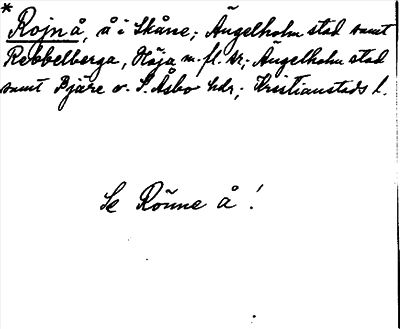 *
Rojnå, å i Skåne; Ängelholm stad samt
Rebbelberga, Höja m. fl. skr; Ängelholm stad
samt Bjäre o. S. Åsbo hdr; Kristianstads l.
Se Rönne å!